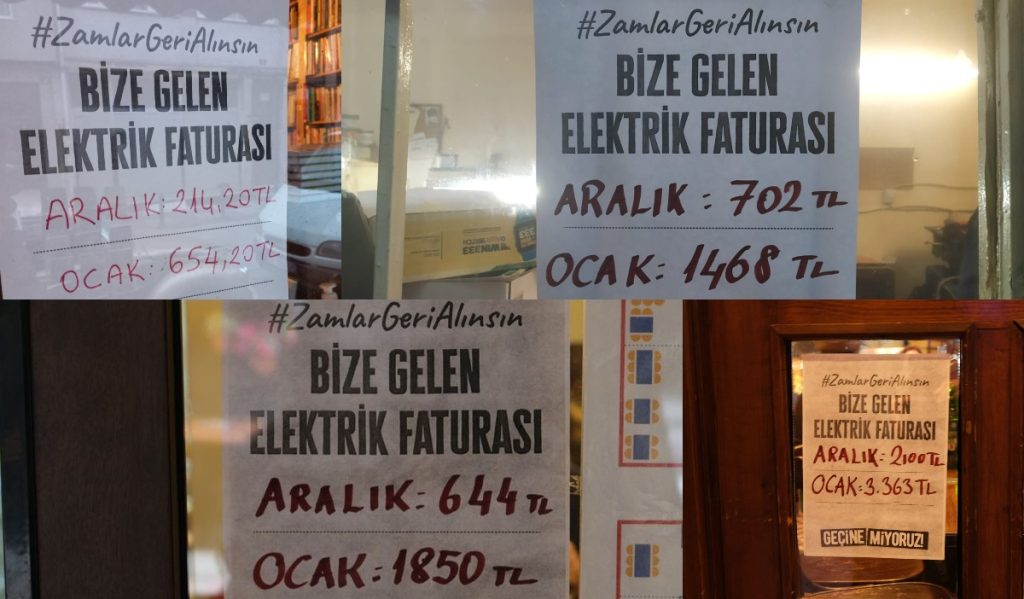 #ZamlarGeriAlınsın
BİZE GELEN
ELEKTRİK FATURASI
ARALIK: 214,20TL
OCAK: 654,20TL
#ZamlarGeriAlınsın
BİZE GELEN
ELEKTRİK FATURASI
ARALIK: 702 TL
OCAK: 1468 TL
#ZamlarGeriAlınsın
BİZE GELEN
ELEKTRİK FATURASI
ARALIK: 644 TL
OCAK: 1850 TL
#ZamlarGeriAlınsın
BİZE GELEN
ELEKTRİK FATURASI
ARALIK= 2100TL
OCAK=3.363 TL
GEÇİNEMİYORUZ!